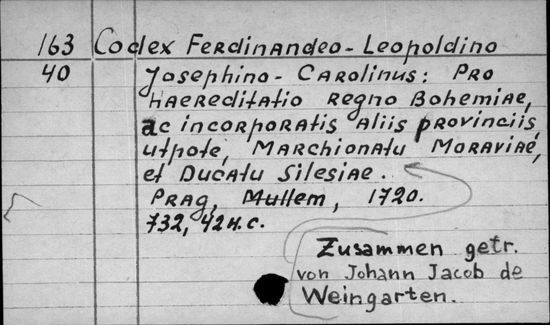 163 Codex Ferdinandeo-Leopoldino
40 Josephino-Carolinus: Pro
haereditatio Regno Bohemiae,
ac incorporatis aliis provinciis,
utpote, Marchionatu Moraviae,
et Ducatu Silesiae.
Prag, Mullem, 1720.
732, 42 H.C.
Zusammen getr.
von Johann Jacob de
Weingarten.